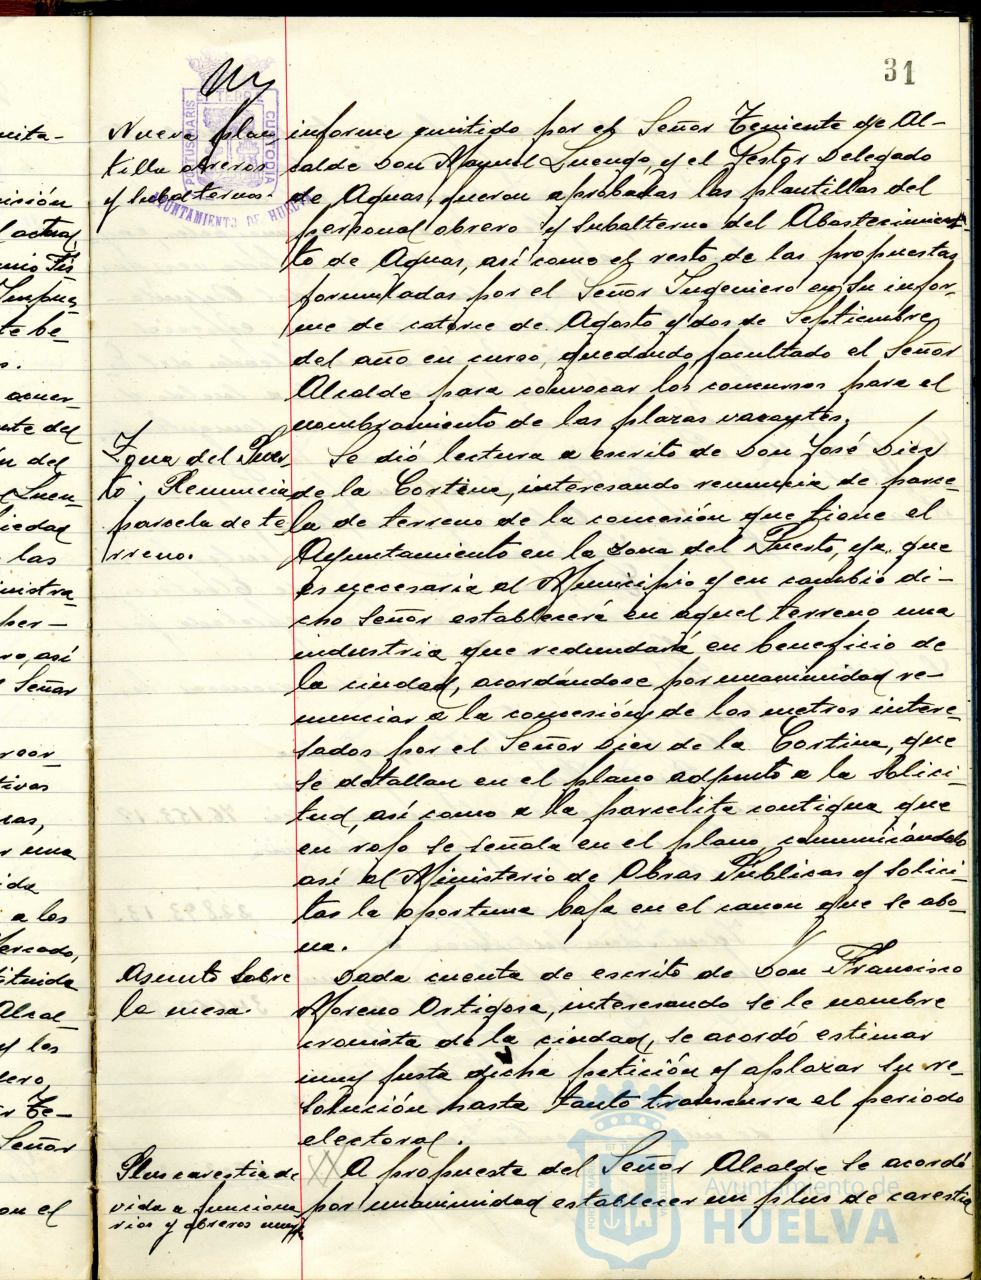 31
Nueva plan
tilla obreros
y subalternos.
informe emitido por el Señor Teniente de Al-
calde Don Manuel Luengo, y el Gestor Delegado
de Aguas, fueron aprobadas las plantillas del
personal obrero y subalterno del Abastecimien-
to de Aguas, así como el resto de las propuestas
formuladas por el Señor Ingeniero en su infor-
me de catorce de Agosto y dos de Septiembre
del año en curso, quedando facultado el Señor
Alcalde para convocar los concursos para el
nombramiento de las plazas vacantes.
Zona del Puer-
to; Renuncia
parcela de te-
rreno.
Se dió lectura a escrito de Don José Diez
de la Cortina, interesando renuncia de parce-
la de terreno de la concesión que tiene el
Ayuntamiento en la zona del Puerto, ya que
es necesaria al Municipio y en cambio di-
cho Señor establecerá en aquel terreno una
industria que redundará en beneficio de
la ciudad, acordándose por unanimidad re-
nunciar a la concesión de los metros intere-
sados por el Señor Diez de la Cortina, que
se detallan en el plano adjunto a la solici-
tud, así como a la parcelita contigua que
en rojo se señala en el plano, comunicándolo
así al Ministerio de Obras Públicas y solici-
tas la oportuna baja en el canon que se abo-
na.
Asunto sobre
la mesa.
Dada cuenta de escrito de Don Francisco
Moreno Ortigosa, interesando se le nombre
cronista de la ciudad, se acordó estimar
muy justa dicha petición y aplazar su re-
solución hasta tanto transcurra el periodo
electoral.
Plus carestia de
vida a funciona
rios y obreros
A propuesta del Señor Alcalde se acordó
por unanimidad establecer un plus de carestia
PORTUS MARIS
ET TERRE
CUSTODIA
AYUNTAMIENTO DE HUELVA
Ayuntamiento de
HUELVA
mita-
te be-
acuer-
las
per-
Señor
una
a los
Mercado,
Alcal-
y los
Señor